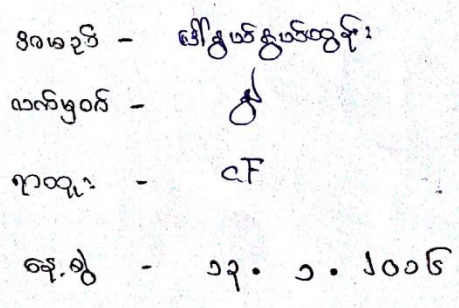 ဒီဇာမည် - ဒေါ်နွယ်နွယ်ထွန်း
လက်မှတ် -
ရာထူး - CF
နေ့စွဲ - ၁၃. ၁. ၂၀၁၆